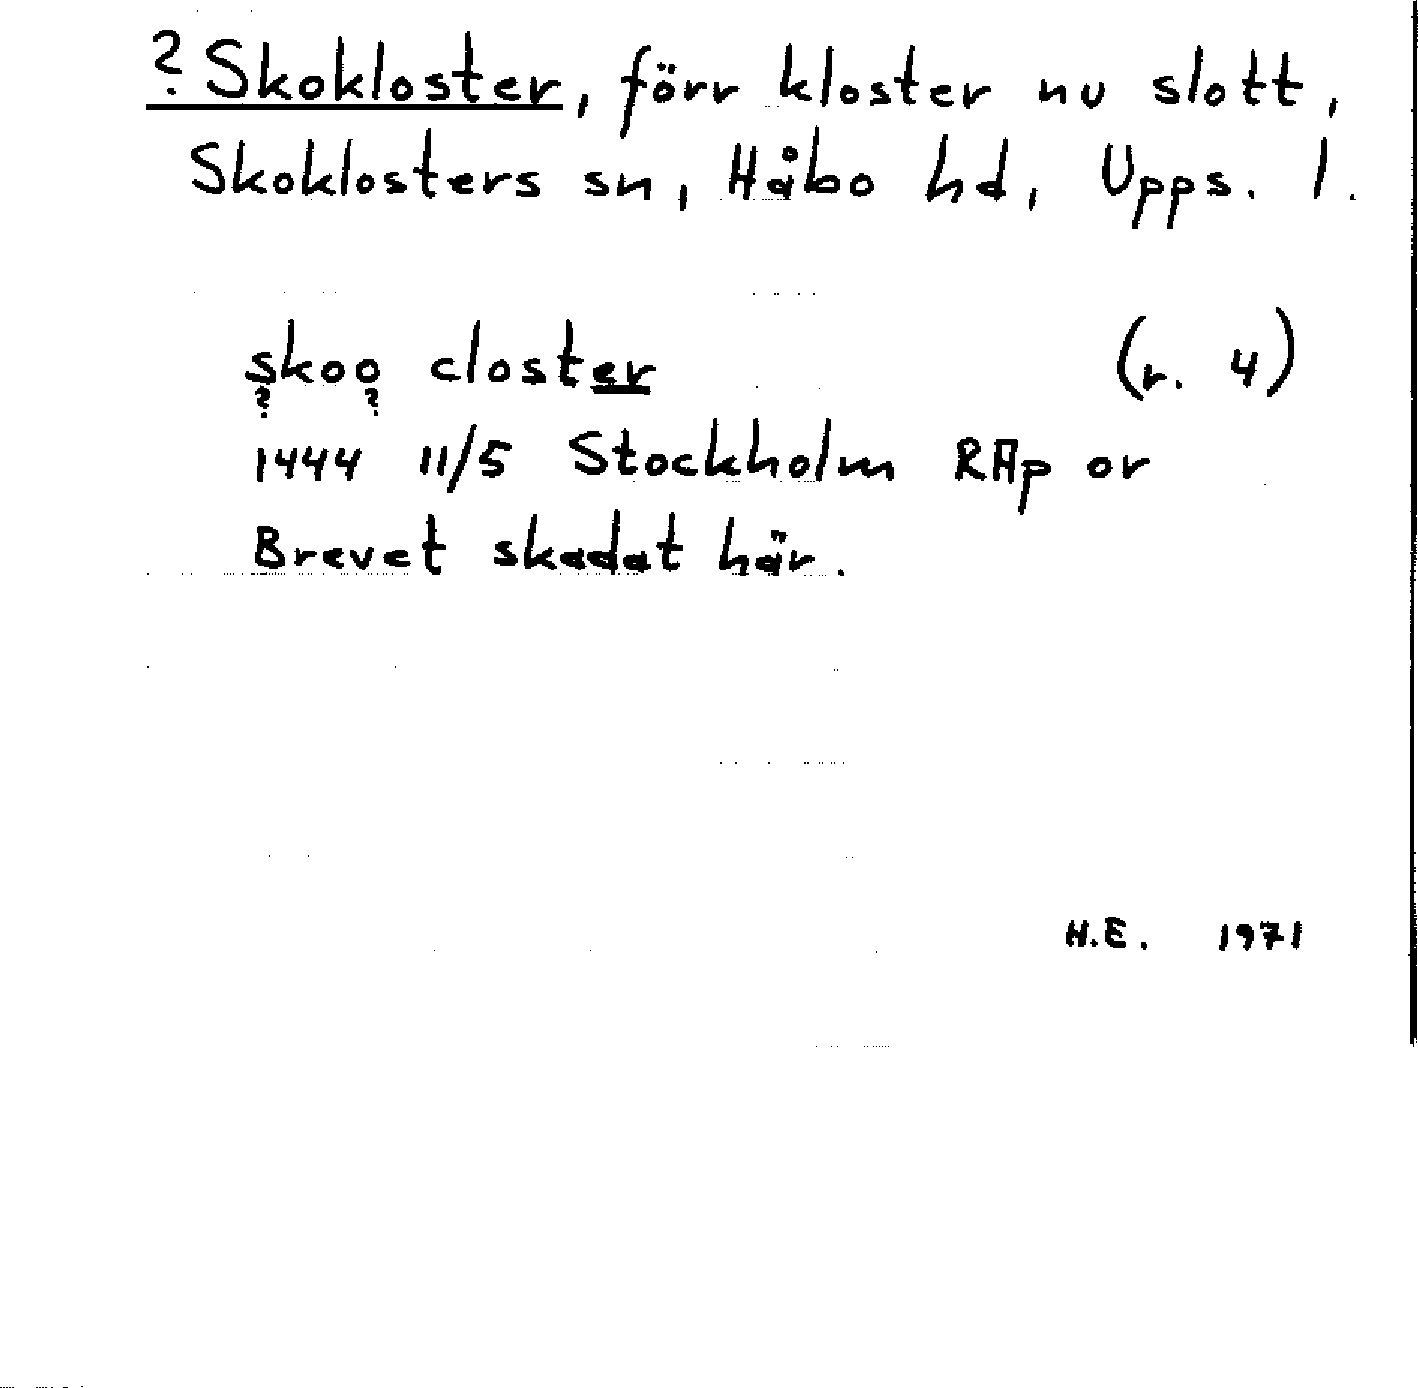 ? Skokloster, förr kloster nu slott,
Skoklosters sn, Håbo hd, Upps. l.
skoo closter (r. 4)
? ?
1444 11/5 Stockholm RAp or
Brevet skadat här.
H.E. 1971